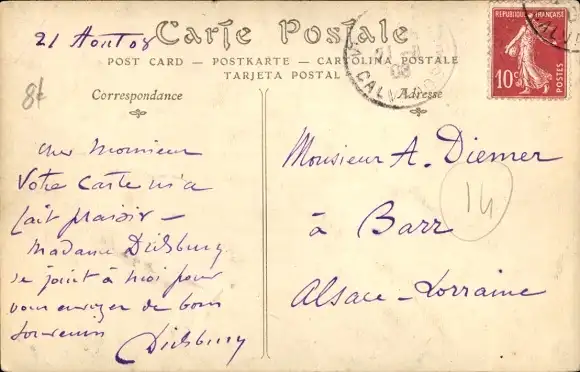 21 Aout 08
Carte Postale
POST CARD — POSTKARTE — CARTOLINA POSTALE
TARJETA POSTAL
REPUBLIQUE FRANÇAISE
10c
POSTES
21
08
CALV
8k
Correspondance
Adresse
Cher Monsieur
Votre Carte m'a
fait plaisir —
Madame Diilsburg
se joint à moi pour
vous envoyer de bons
souvenirs
Diilsburg
Monsieur A. Diemer
à Barr
14
Alsace-Lorraine